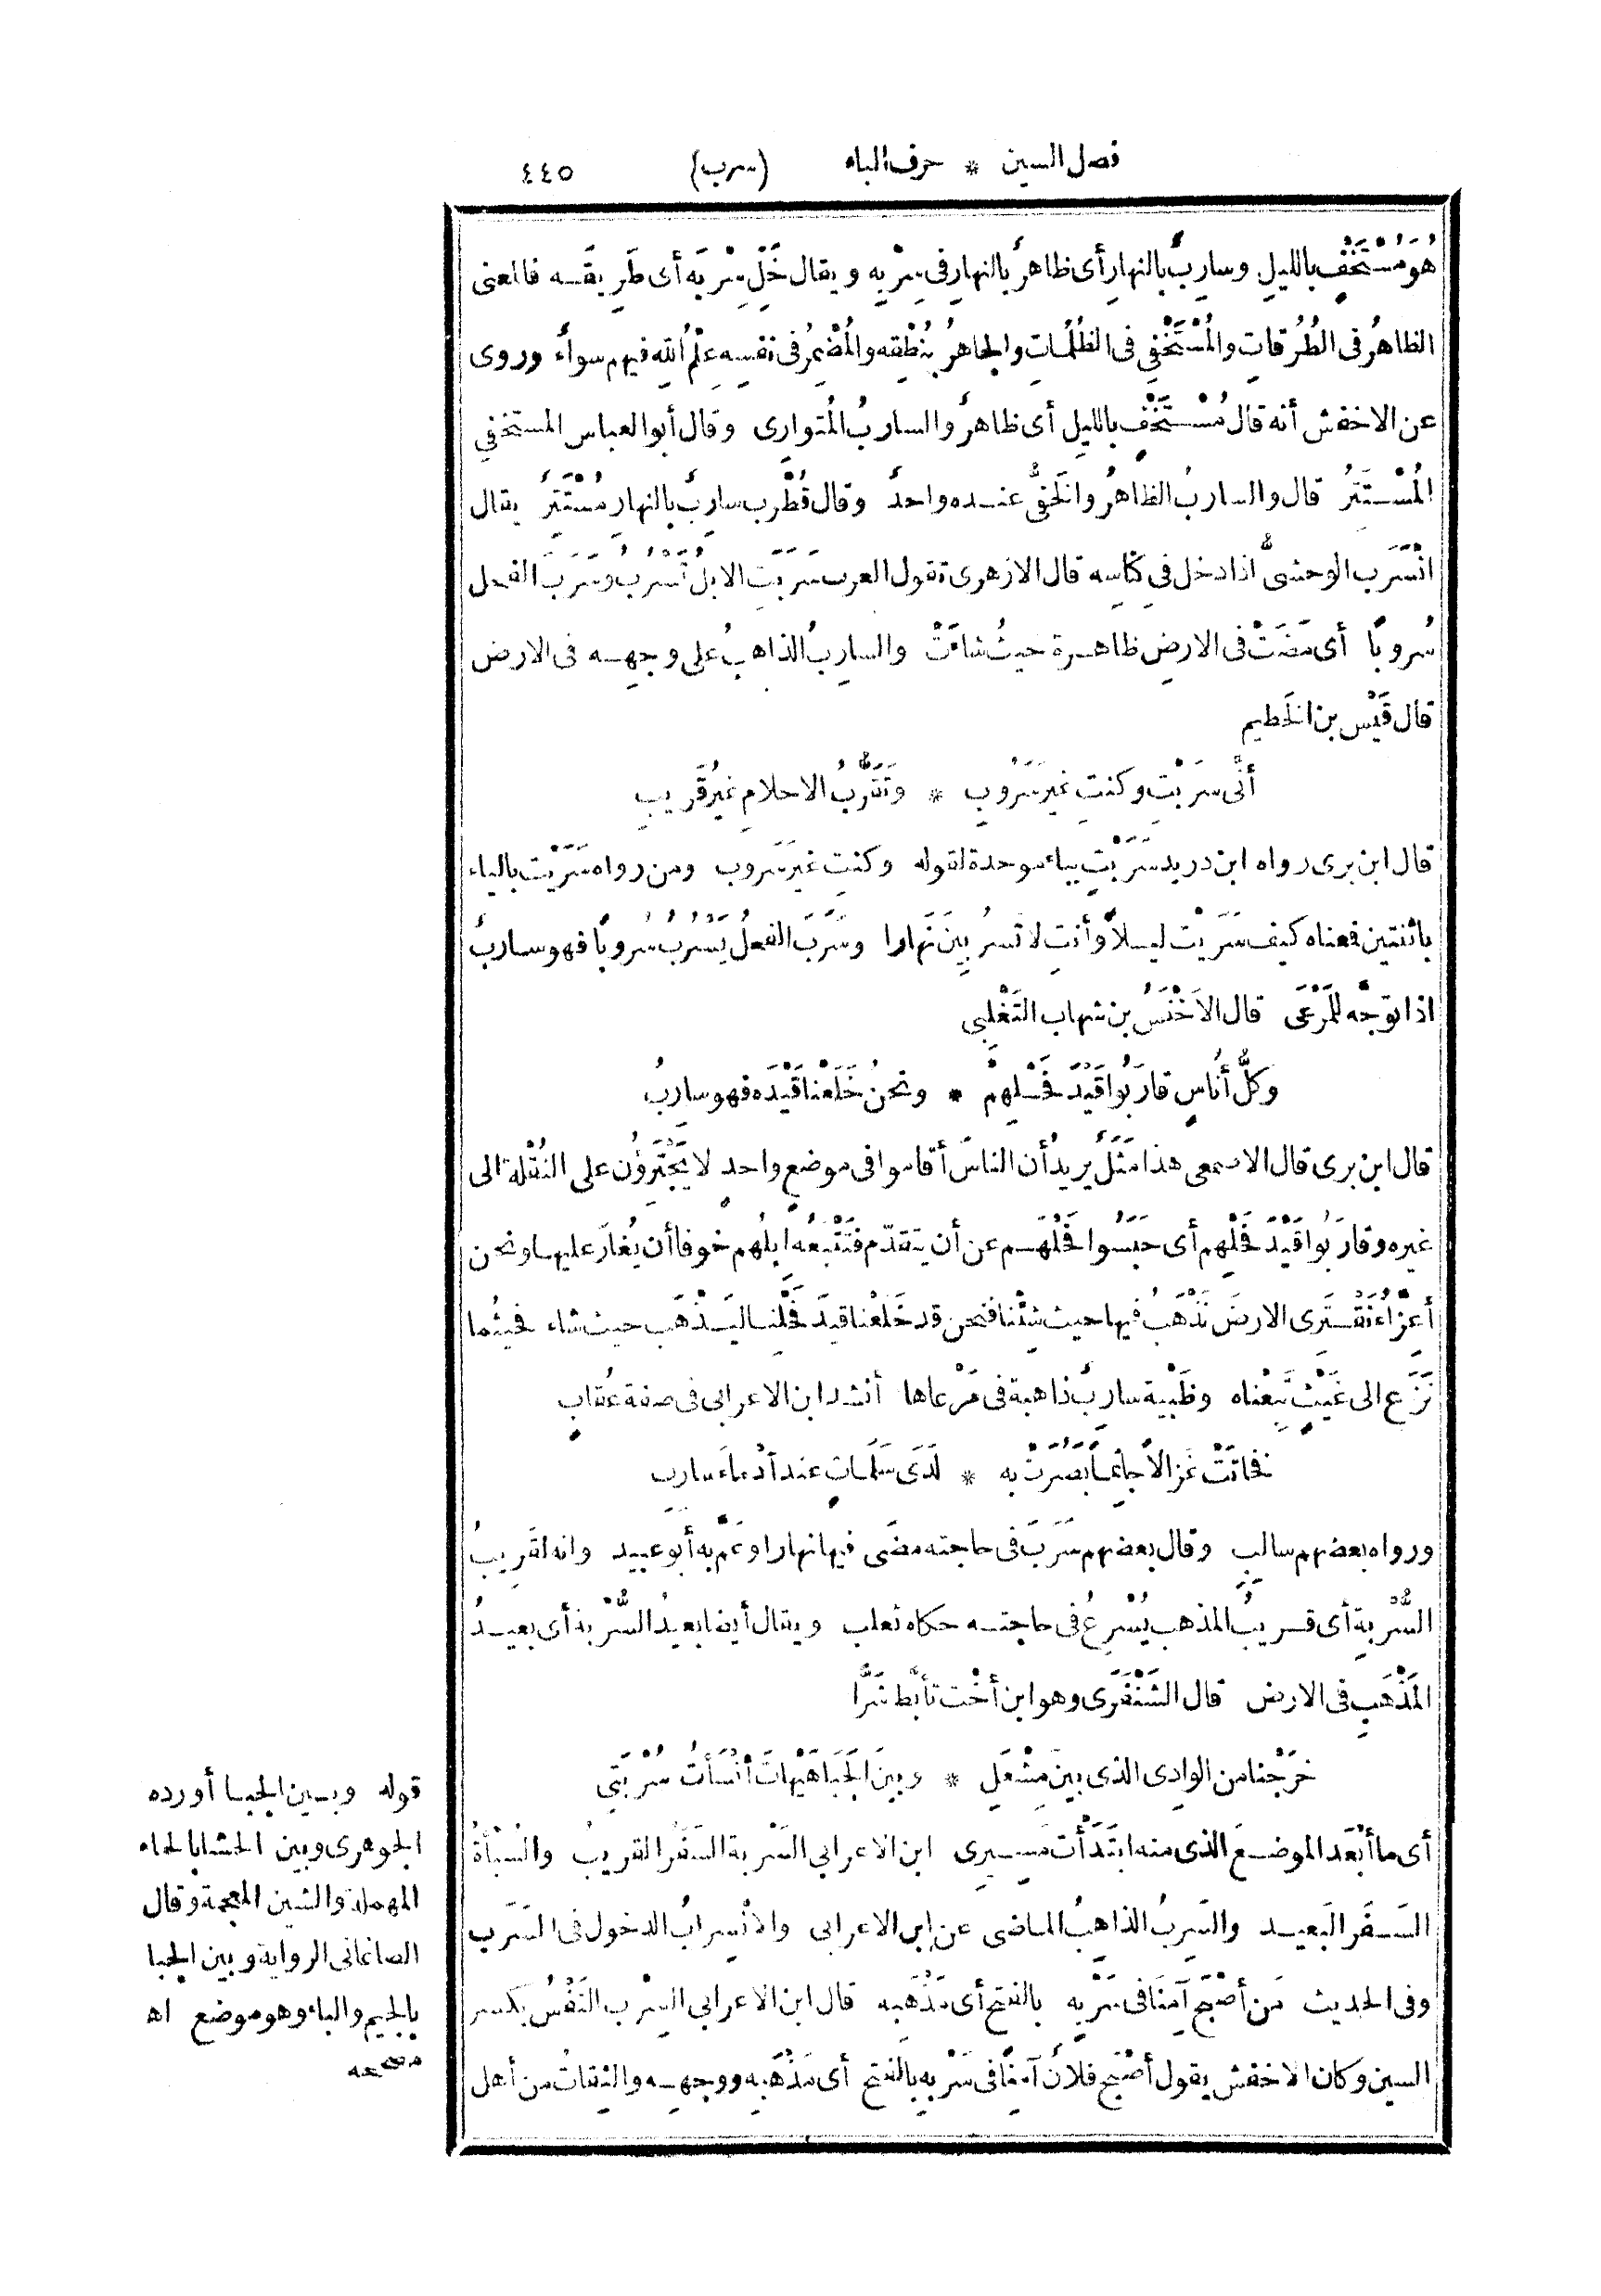 فصل السين * حرف الباء (سرب) ٤٤٥
هُوَ مُسْتَخْفٍ بالليلِ وسارِبٌ بالنهارِ أى ظاهرٌ بالنهارِ فى سِرْبِه ويقال خَلِّ سِرْبَه أى طَرِيقَـه فالمعنى
الظاهرُ فى الطُّرُقاتِ والمُسْتَخْفِى فى الظُلُماتِ والجاهرُ بنُطْقِه والمُضْمِرُ فى نفسِه عِلْمُ اللهِ فيهم سواءٌ وروى
عن الاخفش أنه قال مُسْـتَخْفٍ بالليلِ أى ظاهرٌ والساربُ المُتوارِى وقال أبو العباس المستخفِى
المُسْـتَتِرُ قال والساربُ الظاهرُ والخَفِىُّ عنـده واحدٌ وقال قُطْرب سارِبٌ بالنهارِ مُسْتَتِرٌ يقال
انْسَرَب الوحشىُّ اذا دخل فى كِناسِه قال الازهرى تقول العرب سَرَبَتِ الابلُ تَسْرُبُ وسَرَبَ الفحل
سُروبًا أى مَضَتْ فى الارضِ ظاهـرة حيثُ شاءَتْ والسارِبُ الذاهبُ على وجهِـه فى الارض
قال قَيْس بن الخَطيم
أَنَّى سَرَبْتِ وكنتِ غيرَ سَرُوبِ * وتَقَرُّبُ الاحلامِ غيرُ قَرِيبِ
قال ابن برى رواه ابن دريد سَرَبْتِ بباء موحدة لقوله وكنتِ غيرَ سَروب ومن رواه سَرَيْت بالياء
باثنتين فمعناه كيف سَرَيْت ليـلاً وأنتِ لا تَسرُبِينَ نَهارا وسَرَبَ الفحلُ يَسْرُبُ سُروبًا فهو ساربٌ
اذا توجَّه للمَرْعَى قال الاَخْنَسُ بن شهاب التَغْلَبى
وكلُّ أُناسٍ قارَبُوا قَيْدَ فَحْـلِهِمْ * ونحنُ خَلَعْنا قَيْدَه فهو سارِبُ
قال ابن برى قال الاصمعى هذا مَثَلٌ يريدُ أن الناسَ أقاموا فى موضعٍ واحدٍ لا يَجْتَرِؤُن على النُقْلة الى
غيره وقارَبُوا قَيْدَ فَحْلِهم أى حَبَسُوا فَحْلَهـم عن أن يتقدّم فتَتْبَعُه ابِلُهم خوفا أن يُغارَ عليها ونحن
أَعِزَّاءُ نَقْـتَرِى الارضَ نَذْهَبُ فيها حيث شِئْنا فنحن قد خَلَعْنا قيدَ فَحْلِنـا ليَـذْهَب حيث شاء فحيثُما
نَزَع الى غَيْثٍ تَبِعْناه وظَبْيةٌ ساربٌ ذاهبة فى مَرْعاها أنشد ابن الاعرابى فى صفة عُقابٍ
فخاتَتْ غَزالاً جاثِمًا بَصُرَتْ به * لَدَى سَلَماتٍ عند أَدْماءَ سارِب
ورواه بعضهم سالبِ وقال بعضهم سَرَبَ فى حاجته مضَى فيها نهارا وعَمَّ به أبو عبيد وانه لقَرِيبُ
السُّرْبةِ أى قـريبُ المذهب يُسْرِعُ فى حاجتـه حكاه ثعلب ويقال أيضا بعيدُ السُّرْبة أى بعيـدُ
المَذْهَبِ فى الارض قال الشَنْفَرَى وهو ابن أُخْت تأبَّط شَرًّا
خرَجْنا من الوادِى الذى بينَ مِشْعَلٍ * وبينَ الجَبَا هَيْهاتَ أَنْسَأْتُ سُرْبَتِى
أى ما أَبْعَد الموضـعَ الذى منه ابتَدَأْت مَسِـيرِى ابن الاعرابى السَرْبة السَفَر القريبُ والسُبْأةُ
السَـفَر البَعيـد والسَرِبُ الذاهبُ الماضى عن ابن الاعرابى والانْسِرابُ الدخول فى السَرَب
وفى الحديث مَن أَصْبَح آمِنًا فى سَرْبِه بالفتح أى مَذْهَبِه قال ابن الاعرابى السِرْب النَفْسُ بكسر
السين وكان الاخفش يقول أَصْبَح فلانٌ آمِنًا فى سَرْبِه بالفتح أى مَذْهَبِه ووجهِـه والثِقاتُ من أهل
قوله وبـين الجبـا أورده
الجوهرى وبين الحشا بالحاء
المهملة والشين المعجمة وقال
الصاغانى الرواية وبين الجبا
بالجيم والباء وهو موضع اه
مصححه